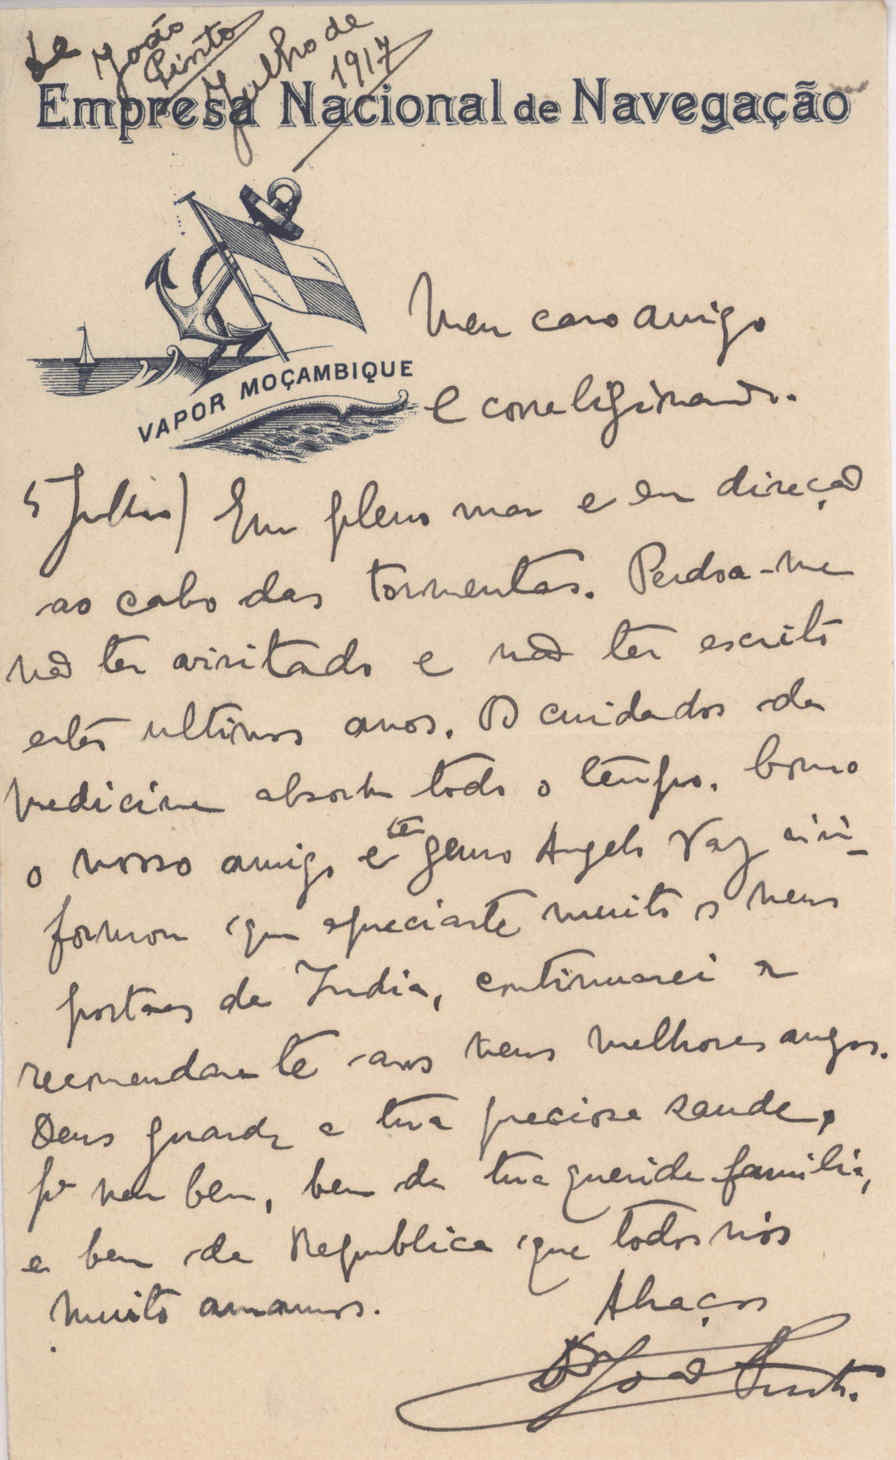 de João
Pinto
Julho de
1917
Empresa Nacional de Navegação
VAPOR MOÇAMBIQUE
Meu caro amigo
e correligionario.
5 Julho) Em pleno mar e em direcção
ao cabo das tormentas. Perdoa-me
não ter visitado e não ter escrito
estes ultimos anos. Os cuidados da
medicina absorvem todo o tempo. Como
o nosso amigo e teu genro Angelo Vaz in-
formou que apreciaste muito os meus
postaes da India, continuarei a
recomendar-te aos meus melhores amigos.
Deus guarde a tua preciosa saude,
pª meu bem, bem da tua querida familia,
e bem da Republica que todos nós
muito amamos.
Abraços
Dr João Pinto.